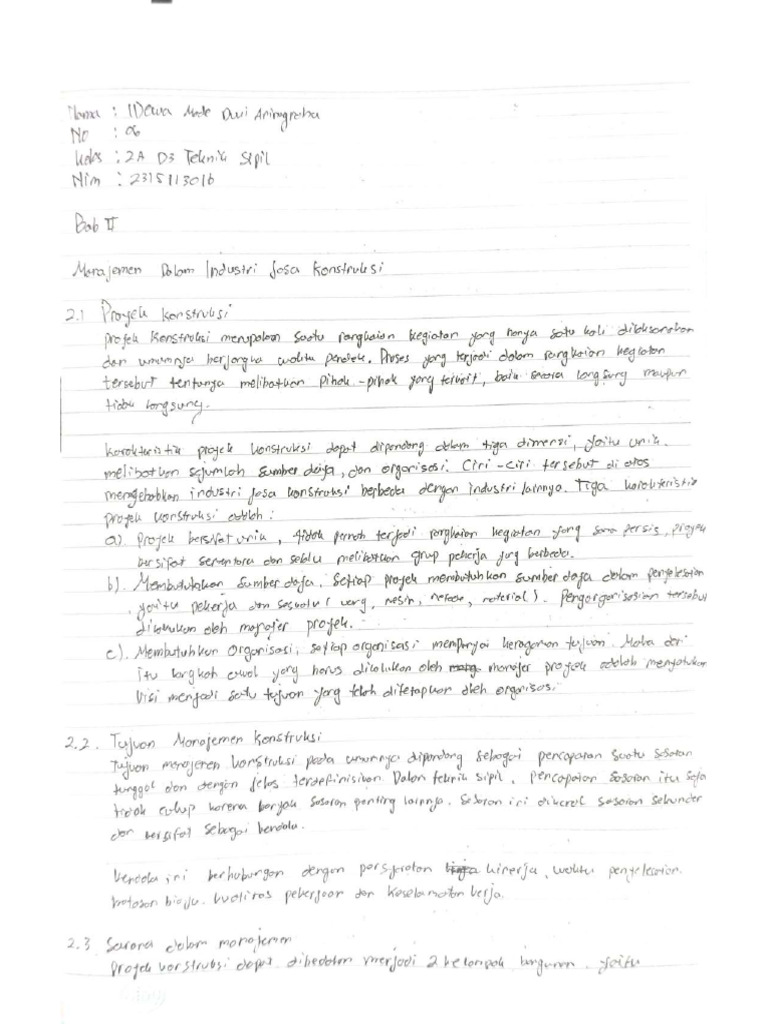 Nama : I Dewa Made Dwi Aningraha
No : 06
Kelas : 2A D3 Teknik Sipil
Nim : 2315113016
Bab II
Manajemen Dalam Industri Jasa Konstruksi
2.1 Proyek Konstruksi
Proyek Konstruksi merupakan suatu rangkaian kegiatan yang hanya satu kali dilaksanakan
dan umumnya berjangka waktu pendek. Proses yang terjadi dalam rangkaian kegiatan
tersebut tentunya melibatkan pihak-pihak yang terkait, baik secara langsung maupun
tidak langsung.
Karakteristik proyek konstruksi dapat dipandang dalam tiga dimensi, yaitu unik,
melibatkan sejumlah sumber daya, dan organisasi. Ciri-ciri tersebut di atas
menyebabkan industri jasa konstruksi berbeda dengan industri lainnya. Tiga karakteristik
proyek konstruksi adalah :
a). Proyek bersifat unik, tidak pernah terjadi rangkaian kegiatan yang sama persis, proyek
bersifat sementara dan selalu melibatkan grup pekerja yang berbeda.
b). Membutuhkan sumber daya. Setiap proyek membutuhkan sumber daya dalam penyelesaian
, yaitu pekerja dan sesuatu (uang, mesin, metode, material). Pengorganisasian tersebut
dilakukan oleh manajer proyek.
c). Membutuhkan organisasi, setiap organisasi mempunyai keragaman tujuan. Maka dari
itu langkah awal yang harus dilakukan oleh manajer proyek adalah menyatukan
visi menjadi satu tujuan yang telah ditetapkan oleh organisasi.
2.2. Tujuan Manajemen Konstruksi
Tujuan manajemen konstruksi pada umumnya dipandang sebagai pencapaian suatu sasaran
tunggal dan dengan jelas terdefinisikan. Dalam teknik sipil, pencapaian sasaran itu saja
tidak cukup karena banyak sasaran penting lainnya. Sasaran ini dikenal sasaran sekunder
dan bersifat sebagai kendala.
Kendala ini berhubungan dengan persyaratan kinerja, waktu penyelesaian,
batasan biaya, kualitas pekerjaan dan keselamatan kerja.
2.3 Sarana dalam manajemen
Proyek konstruksi dapat dibedakan menjadi 2 kelompok bangunan, yaitu